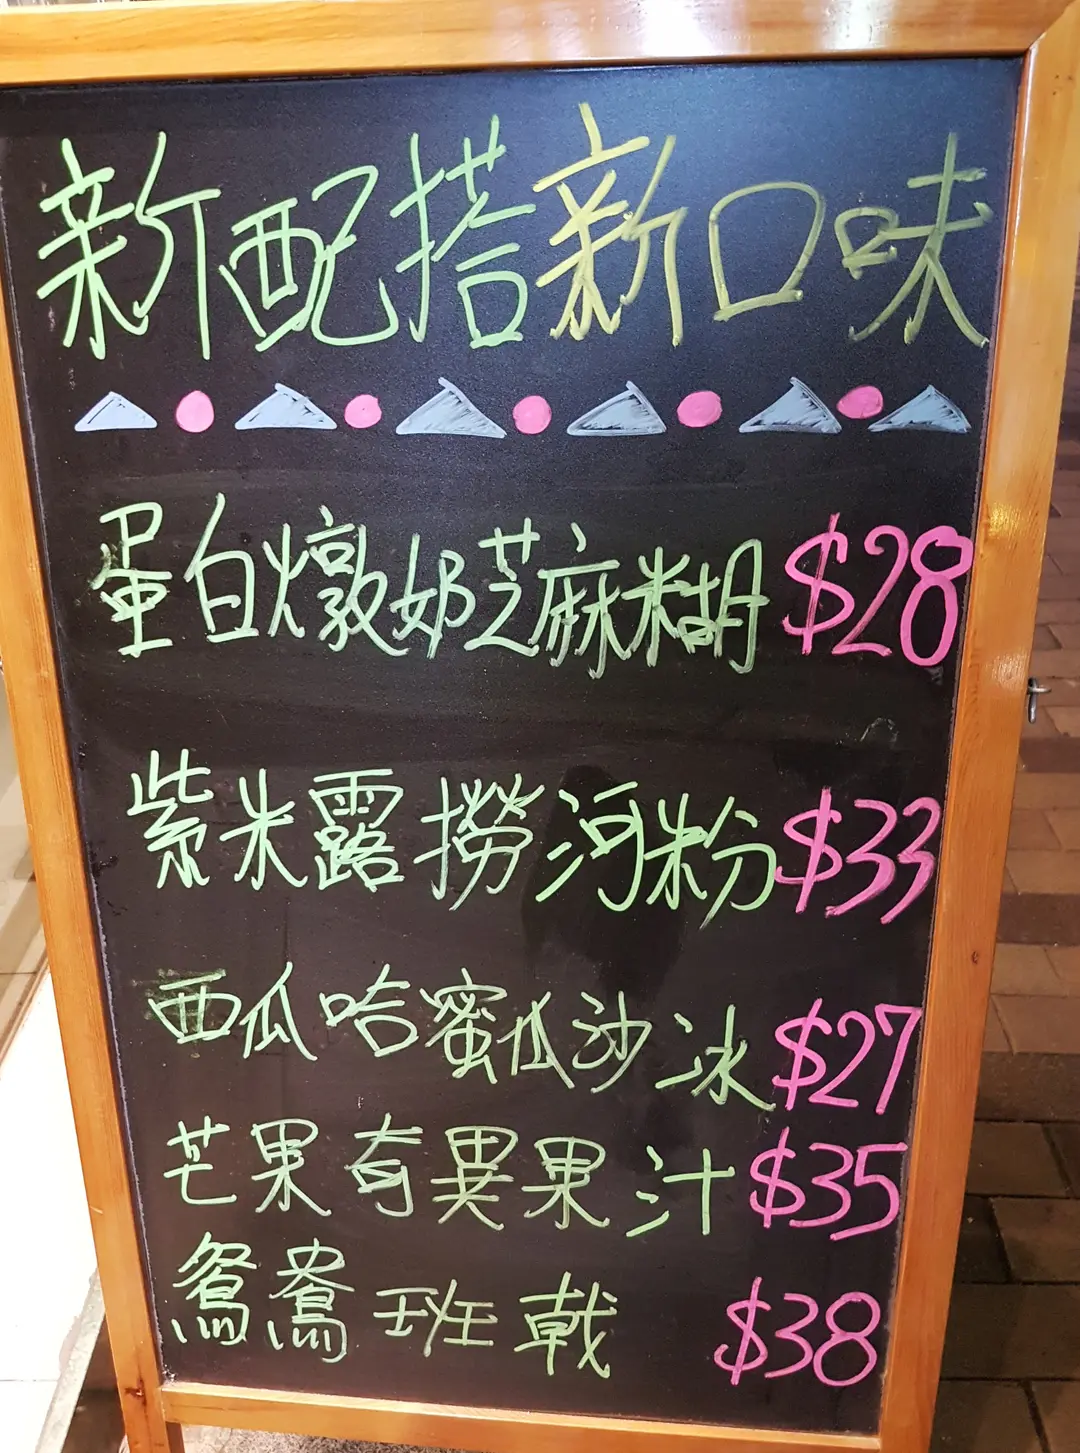 新配搭新口味
蛋白燉奶芝麻糊 $28
紫米露撈河粉 $33
西瓜哈蜜瓜沙冰 $27
芒果奇異果汁 $35
鴛鴦班戟 $38